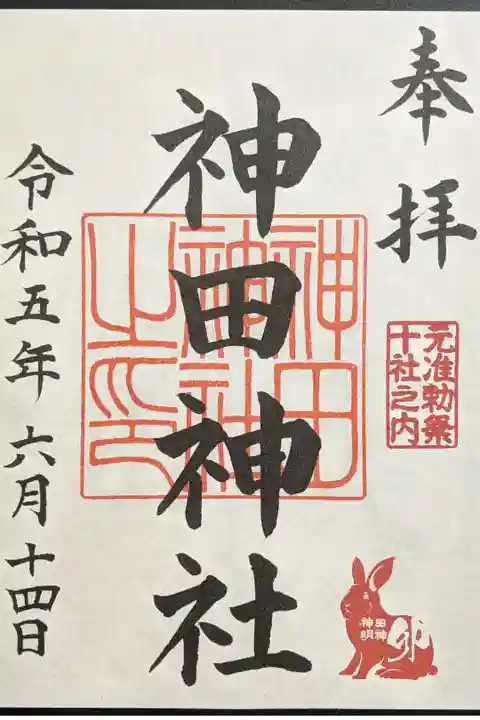 奉拝
元准勅祭
十社之内
神田神社
神田
神社
之印
神田
神明
卯
令和五年六月十四日